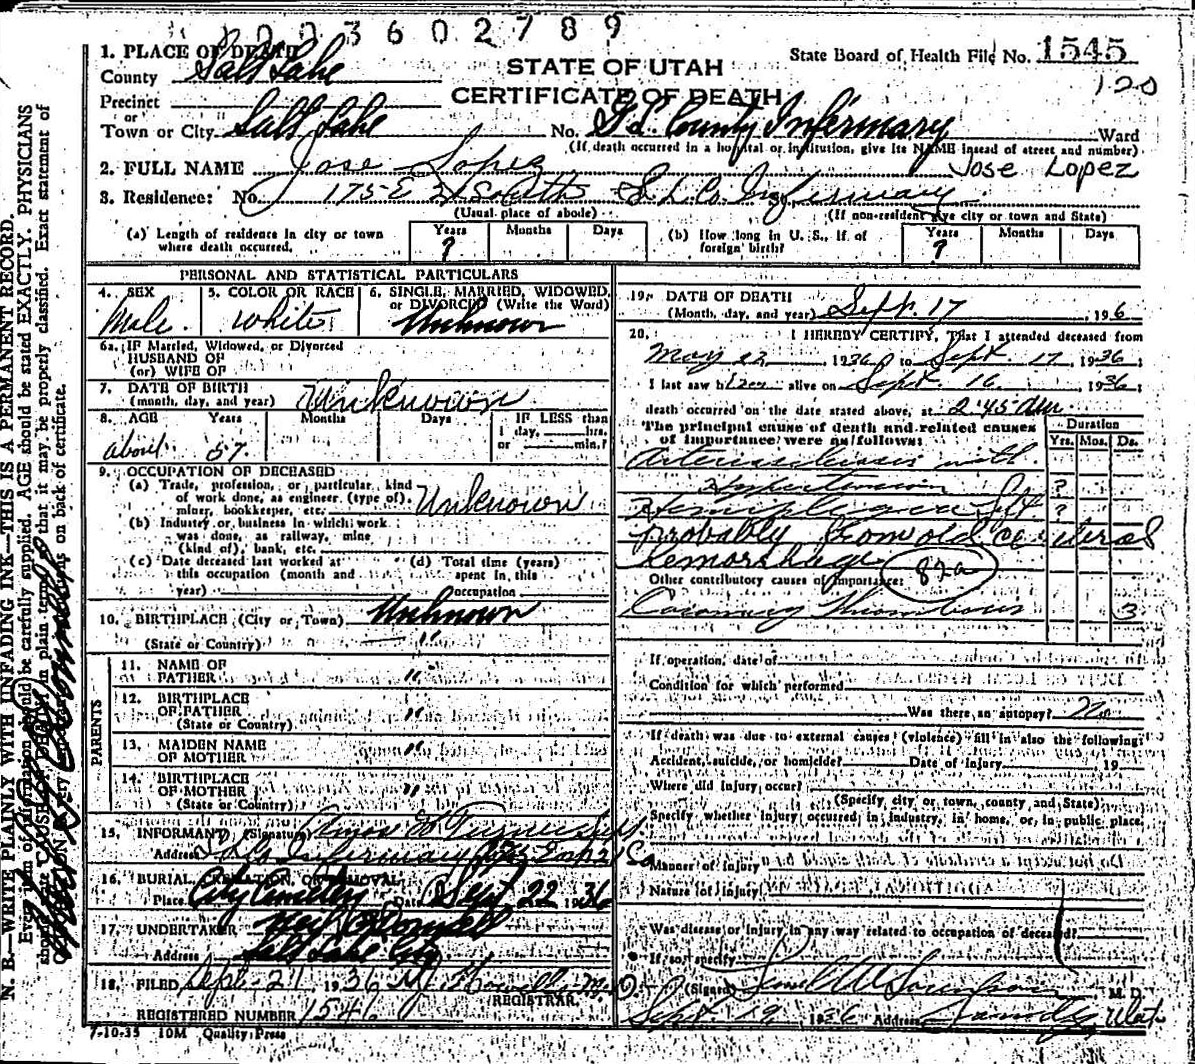 003602789
1. PLACE OF DEATH
County Salt Lake
STATE OF UTAH
State Board of Health File No. 1545
120
Precinct
CERTIFICATE OF DEATH
or
Town or City Salt Lake No. S. L. County Infirmary Ward
(If death occurred in a hospital or institution, give its NAME instead of street and number)
2. FULL NAME Jose Lopez Jose Lopez
3. Residence: No. 175 E 21 South S. L. Co. Infirmary
(Usual place of abode) (If non-resident give city or town and State)
(a) Length of residence in city or town where death occurred. Years ? Months Days
(b) How long in U. S., if of foreign birth? Years ? Months Days
PERSONAL AND STATISTICAL PARTICULARS
4. SEX Male.
5. COLOR OR RACE White
6. SINGLE, MARRIED, WIDOWED, or DIVORCED (Write the Word) Unknown
6a. IF Married, Widowed, or Divorced
HUSBAND OF
(or) WIFE OF
7. DATE OF BIRTH
(month, day, and year) Unknown
8. AGE Years Months Days IF LESS than
1 day, hrs.
or min.?
about 57.
9. OCCUPATION OF DECEASED
(a) Trade, profession, or particular kind
of work done, as engineer (type of),
miner, bookkeeper, etc. Unknown
(b) Industry or business in which work
was done, as railway, mine
(kind of), bank, etc.
(c) Date deceased last worked at
this occupation (month and
year)
(d) Total time (years)
spent in this
occupation
10. BIRTHPLACE (City or Town) Unknown
(State or Country) "
PARENTS
11. NAME OF
FATHER "
12. BIRTHPLACE
OF FATHER "
(State or Country)
13. MAIDEN NAME
OF MOTHER "
14. BIRTHPLACE
OF MOTHER "
(State or Country)
15. INFORMANT (Signature)
Address Infirmary
16. BURIAL, CREMATION, OR REMOVAL
Place City Cemetery Date Sept 22 1936
17. UNDERTAKER Neil O'Donnell
Address Salt Lake City
18. FILED Sept-21 1936
REGISTRAR.
REGISTERED NUMBER 1546
7-10-35 10M Quality Press
19. DATE OF DEATH
(Month, day, and year) Sept. 17, 1936
20. I HEREBY CERTIFY, That I attended deceased from
May 22 1936 to Sept. 17, 1936
I last saw him alive on Sept. 16, 1936
death occurred on the date stated above, at 2:45 AM
The principal cause of death and related causes
of importance were as follows:
Duration
Yrs. Mos. Ds.
Arteriosclerosis with
Hypertension ?
Hemiplegia Left ?
probably from old cerebral
hemorrhage 82a
Other contributory causes of importance:
Coronary Thrombosis 3
If operation, date of
Condition for which performed
Was there an autopsy? No
If death was due to external causes (violence) fill in also the following:
Accident, suicide, or homicide? Date of injury 19
Where did injury occur?
(Specify city or town, county and State)
Specify whether injury occurred in industry, in home, or in public place.
Manner of injury
Nature of injury
Was disease or injury in any way related to occupation of deceased?
If so, specify
(Signed) M. D.
Sept. 19 1936 Address Utah
N. B.—WRITE PLAINLY WITH UNFADING INK—THIS IS A PERMANENT RECORD.
Every item of information should be carefully supplied. AGE should be stated EXACTLY. PHYSICIANS
should state CAUSE OF DEATH in plain terms, so that it may be properly classified. Exact statement of
on back of certificate.